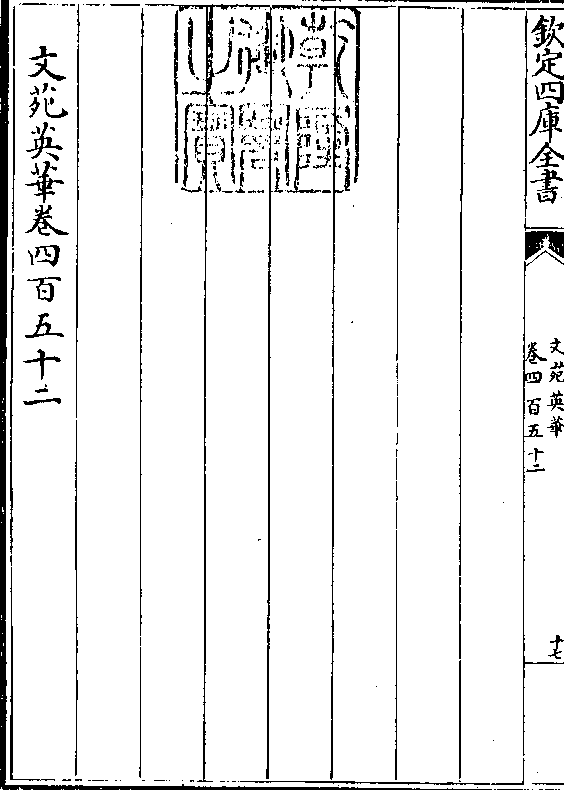 欽定四庫全書
文苑英華
卷四百五十二
十七
乾隆御覽之寶
文苑英華卷四百五十二